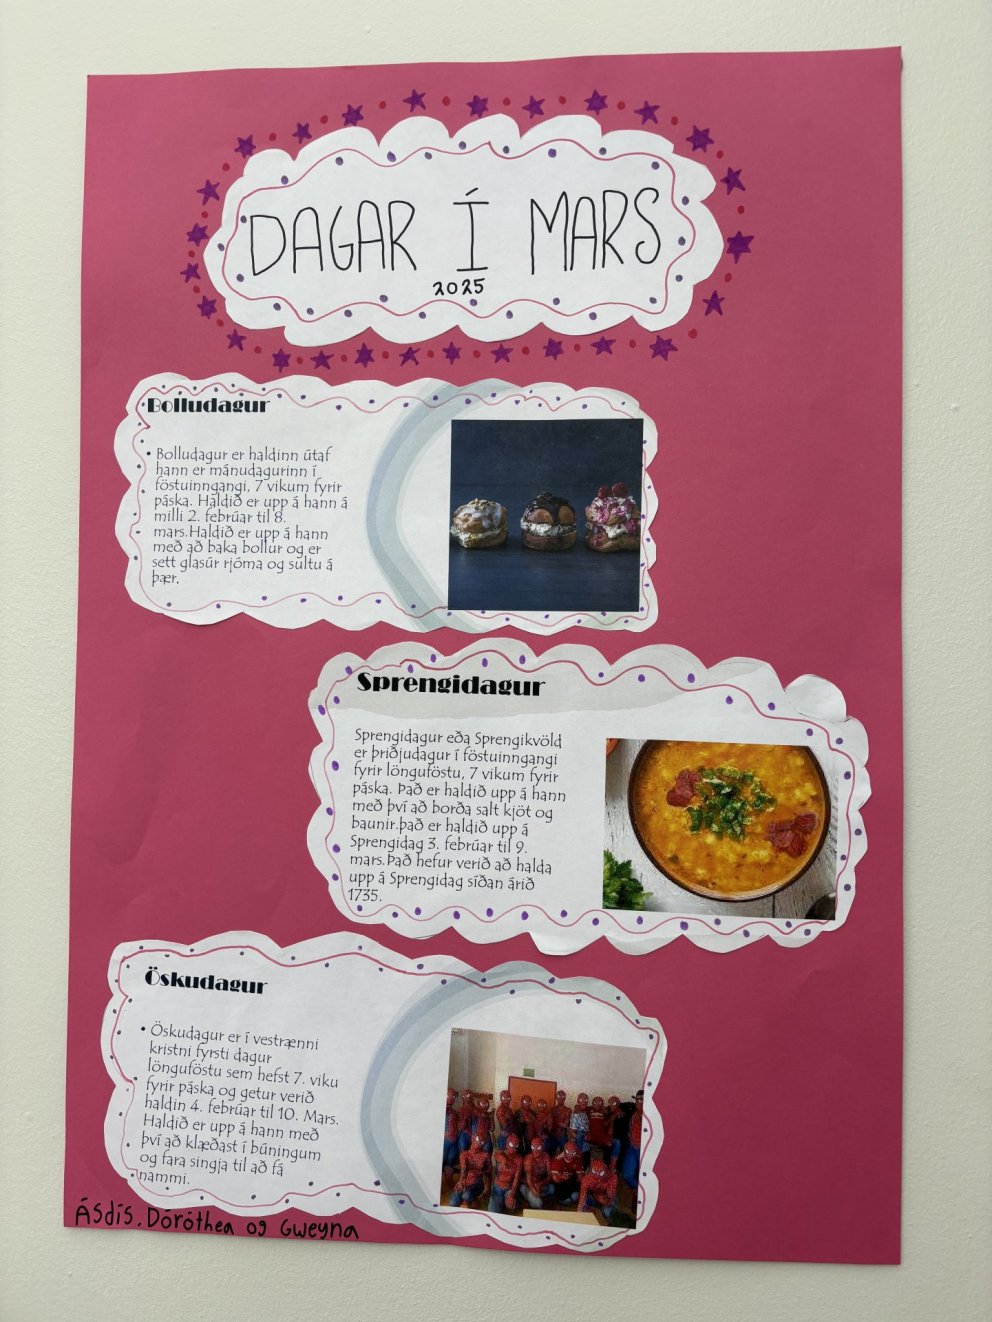 DAGAR Í MARS
2025
Bolludagur
• Bolludagur er haldinn útaf
hann er mánudagurinn í
föstuinngangi, 7 vikum fyrir
páska. Haldið er upp á hann á
milli 2. febrúar til 8.
mars.Haldið er upp á hann
með að baka bollur og er
sett glasúr rjóma og sultu á
þær.
Sprengidagur
Sprengidagur eða Sprengikvöld
er þriðjudagur í föstuinngangi
fyrir lönguföstu, 7 vikum fyrir
páska. Það er haldið upp á hann
með því að borða salt kjöt og
baunir.það er haldið upp á
Sprengidag 3. febrúar til 9.
mars.Það hefur verið að halda
upp á Sprengidag síðan árið
1735.
Öskudagur
• Öskudagur er í vestrænni
kristni fyrsti dagur
lönguföstu sem hefst 7. viku
fyrir páska og getur verið
haldin 4. febrúar til 10. Mars.
Haldið er upp á hann með
því að klæðast í búningum
og fara singja til að fá
nammi.
Ásdís, Dóróthea og Gweyna